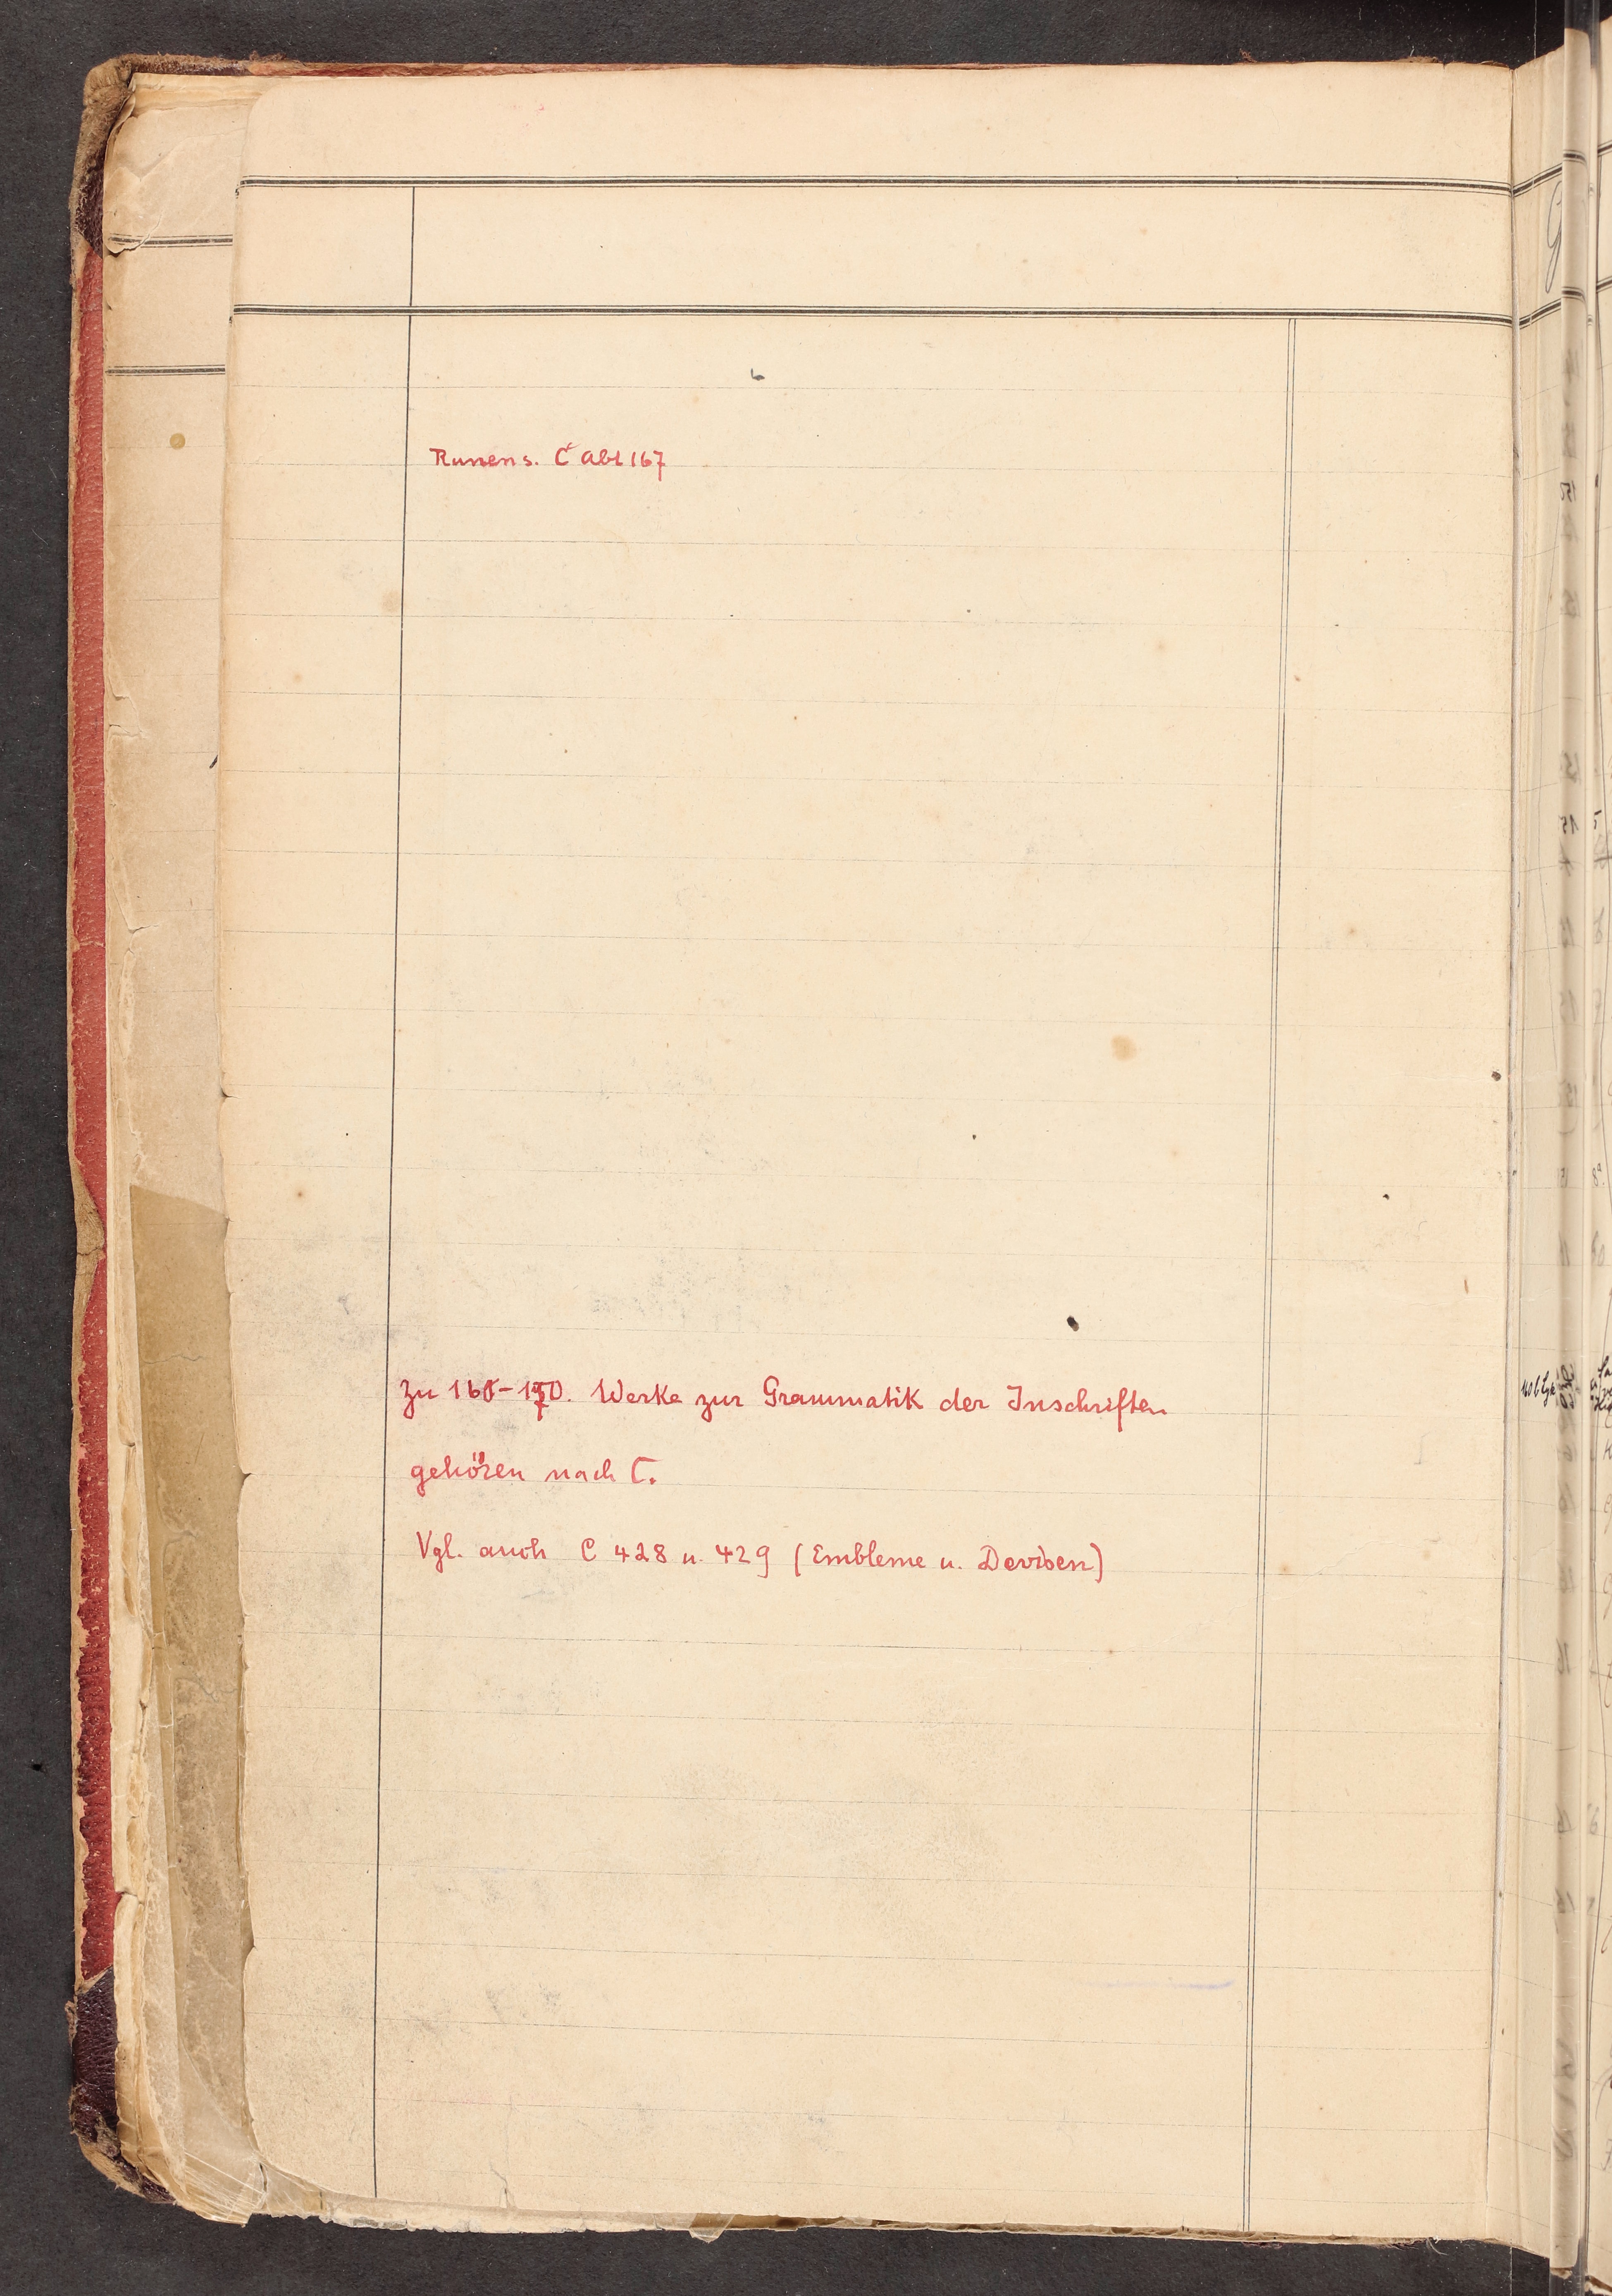 Runen s. C Abt 167
Zu 165-170. Werke zur Grammatik der Inschriften
gehören nach C.
Vgl. auch C 428 u. 429 (Embleme u. Devisen)